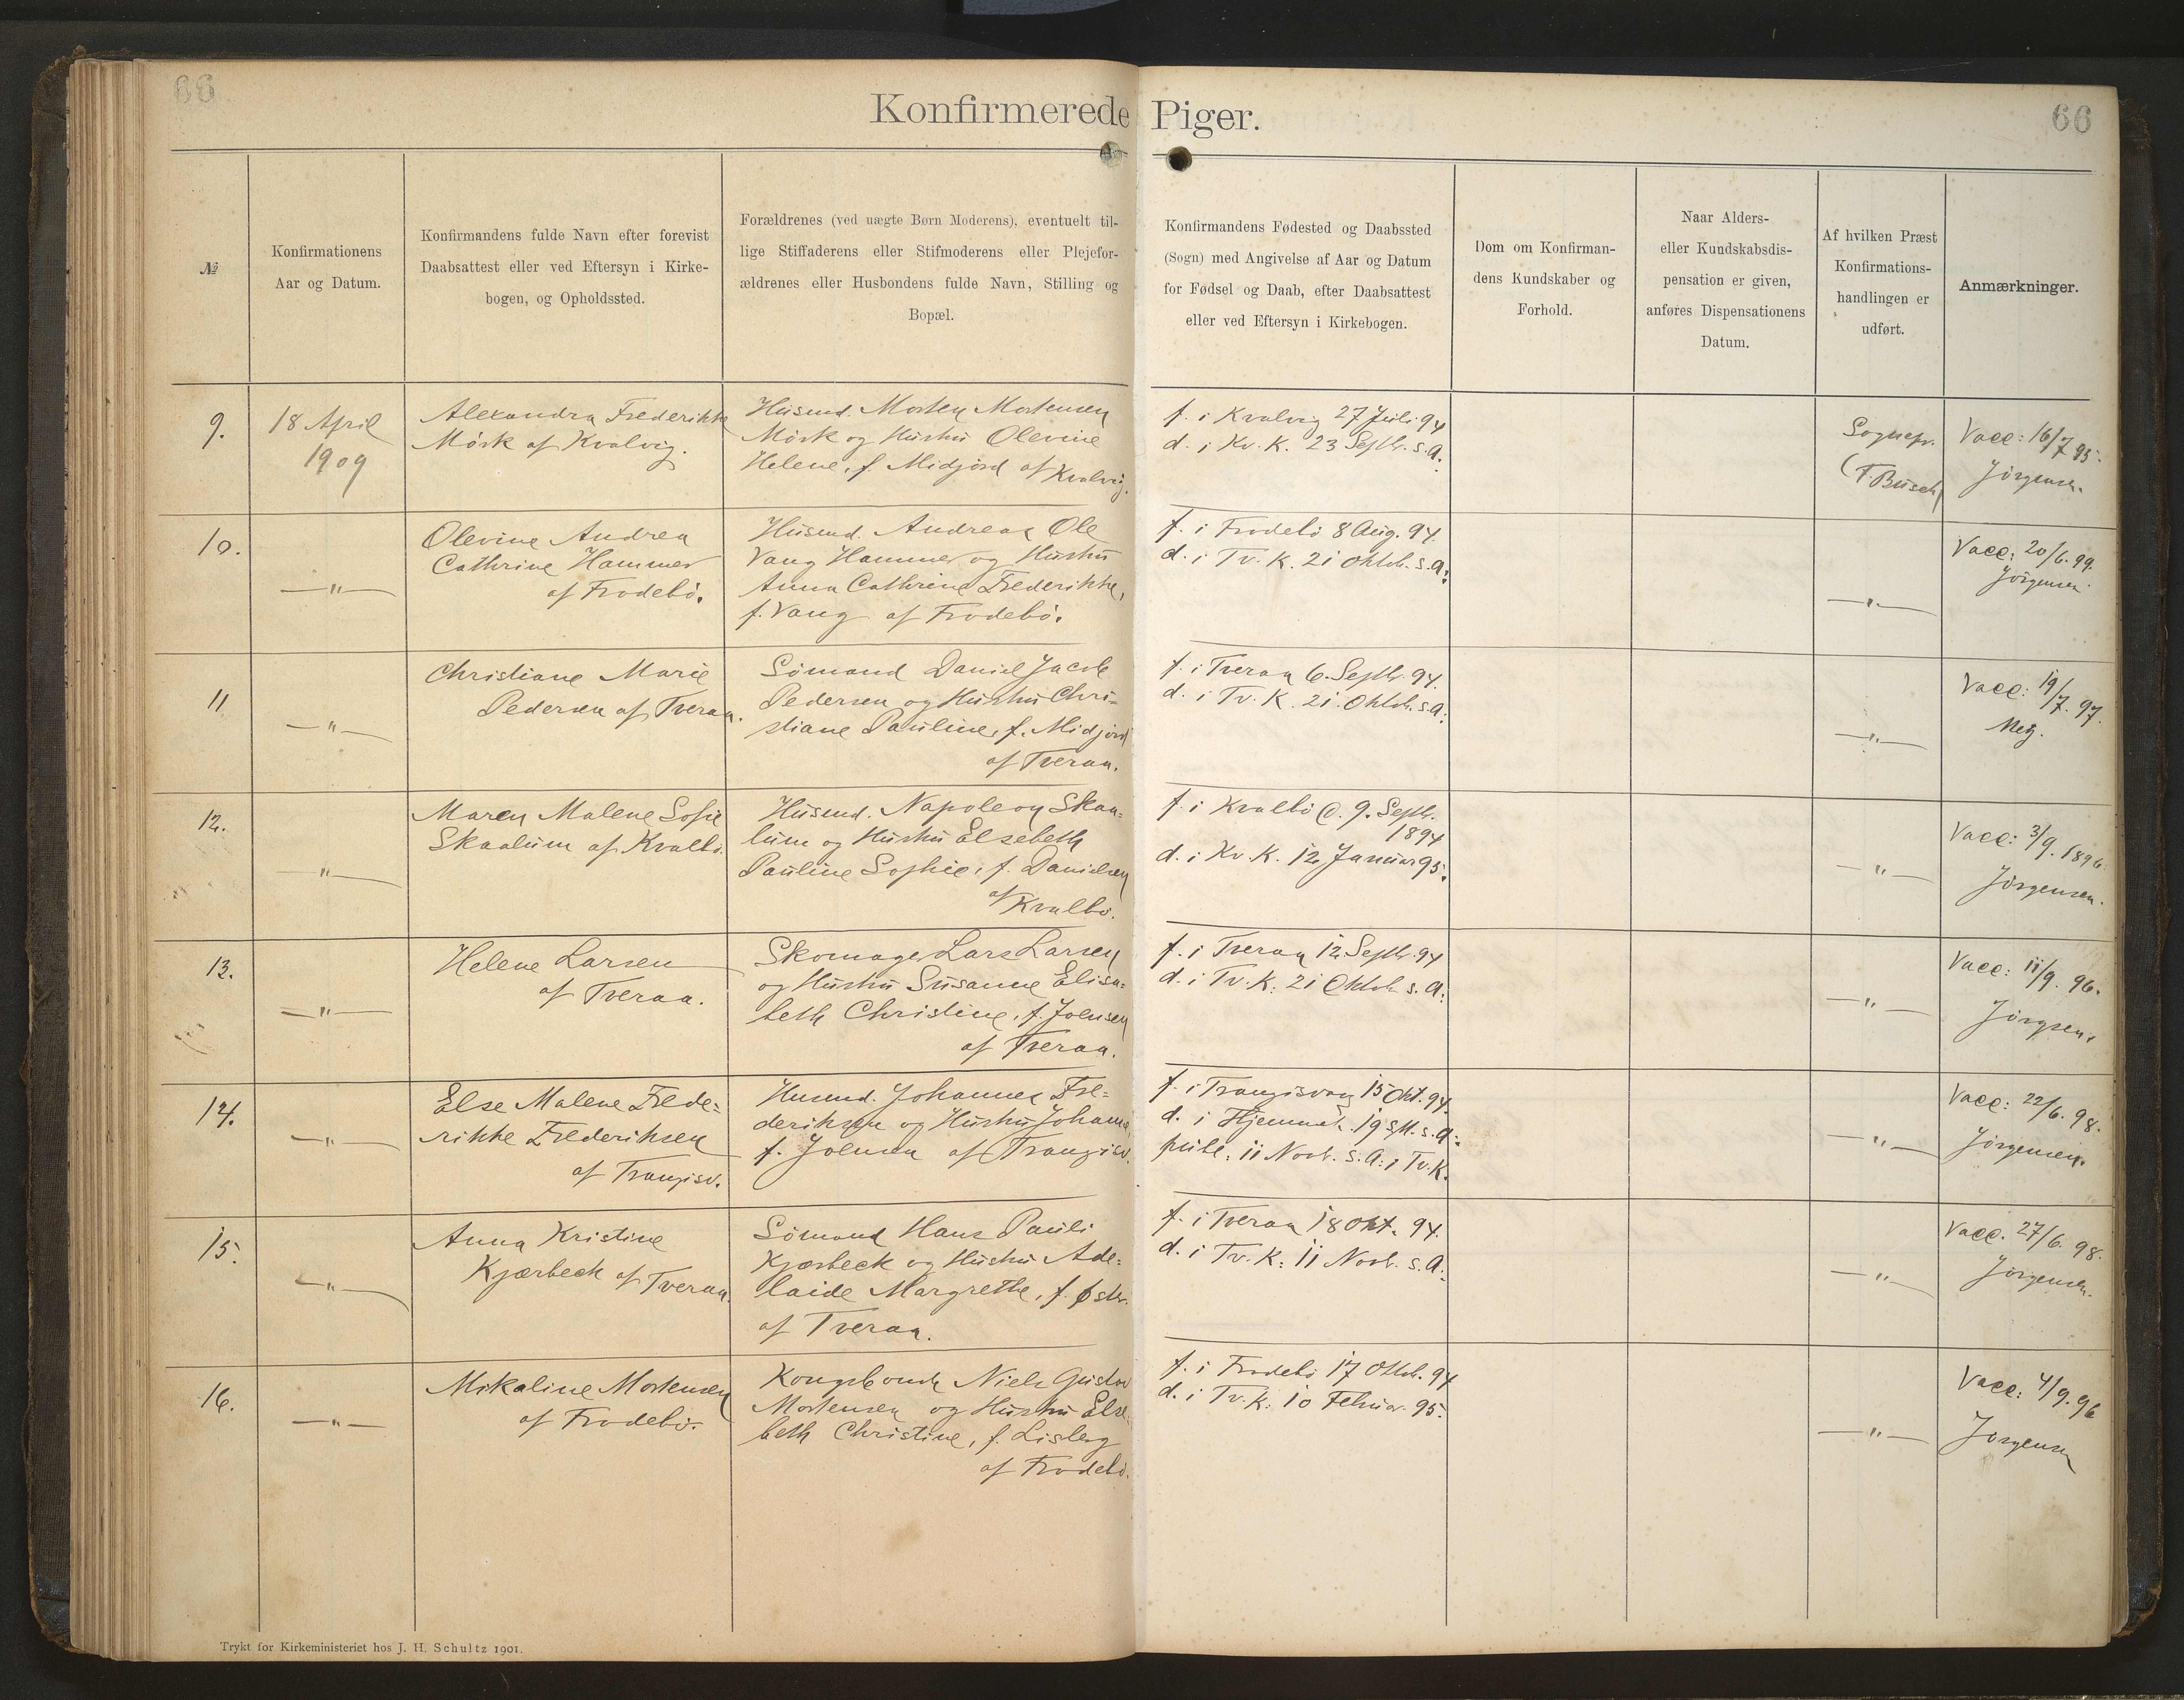 66
Konfirmerede Piger.
66
№
Konfirmationens
Aar og Datum.
Konfirmandens fulde Navn efter forevist
Daabsattest eller ved Eftersyn i Kirke-
bogen, og Opholdssted.
Forældrenes (ved uægte Børn Moderens), eventuelt til-
lige Stiffaderens eller Stifmoderens eller Plejefor-
ældrenes eller Husbondens fulde Navn, Stilling og
Bopæl.
Konfirmandens Fødested og Daabssted
(Sogn) med Angivelse af Aar og Datum
for Fødsel og Daab, efter Daabsattest
eller ved Eftersyn i Kirkebogen.
Dom om Konfirman-
dens Kundskaber og
Forhold.
Naar Alders-
eller Kundskabsdis-
pensation er given,
anføres Dispensationens
Datum.
Af hvilken Præst
Konfirmations-
handlingen er
udført.
Anmærkninger.
9.
18 April
1909
Alexandra Frederikke
Mörk af Kvalvig.
Husmd. Morten Mortensen
Mörk og Hustru Olevine
Helene, f. Midjord af Kvalvig.
f. i Kvalvig 27 Juli 94
d. i Kv. K. 23 Septb. s. A.
Sognepr.
(F. Busch)
Vacc: 16/7 95.
Jörgensen.
10.
—"—
Olevine Andrea
Cathrine Hammer
af Frodebö.
Husmd. Andreas Ole
Vang Hammer og Hustru
Anna Cathrine Frederikke,
f. Vang af Frodebö.
f. i Frodebö 8 Aug. 94.
d. i Tv. K. 21 Oktob. s. A:
—"—
Vacc: 20/6. 99.
Jörgensen.
11
—"—
Christiane Marie
Pedersen af Tveraa.
Sömand Daniel Jacob
Pedersen og Hustru Chri-
stiane Pauline, f. Midjord
af Tveraa.
f. i Tveraa 6. Septb. 94.
d. i Tv. K. 21. Oktob. s. A:
—"—
Vacc: 19/7. 97.
12.
—"—
Maren Malene Sofie
Skaalum af Kvalbö.
Husmd. Napoleon Skaa-
lum og Hustru Elsebeth
Pauline Sophie, f. Danielsen
af Kvalbö.
f. i Kvalbö d. 9. Septb.
1894
d. i Kv. K. 12 Januar 95.
—"—
Vacc: 3/9. 1896.
Jörgensen.
13.
—"—
Helene Larsen
af Tveraa.
Skomager Lars Larsen
og Hustru Susanne Elisa-
beth Christine, f. Joensen
af Tveraa.
f. i Tveraa 12 Septb. 94
d. i Tv. K. 21 Oktob s. A:
—"—
Vacc: 11/9. 96.
Jörgsen.
14.
—"—
Else Malene Frede-
rikke Frederiksen
af Trangisv.
Husmd. Johannes Fre-
deriksen og Hustru Johanna
f. Joensen af Trangisv.
f. i Trangisvag 15 Okt. 94.
d. i Hjemmet. 19 s/M. s. A:
publ. 11 Novb. s. A: i Tv. K.
—"—
Vacc: 22/6. 98.
Jörgensen.
15.
—"—
Anna Kristine
Kjærbeck af Tveraa.
Sömand Hans Pauli
Kjærbeck og Hustru Ade-
laide Margrethe, f. Øster.
af Tveraa.
f. i Tveraa 18 Okt. 94.
d. i Tv. K: 11 Novb. s. A:
—"—
Vacc. 27/6. 98.
Jörgensen.
16.
—"—
Mikaline Mortensen
af Frodebö.
Kongsbonde Niels Gustav
Mortensen og Hustru Else-
beth Christine, f. Lisberg
af Frodebö.
f. i Frodebö 17 Oktob. 94
d. i Tv. K: 10 Februar. 95.
—"—
Vacc: 4/9. 96
Jörgensen
Trykt for Kirkeministeriet hos J. H. Schultz 1901.